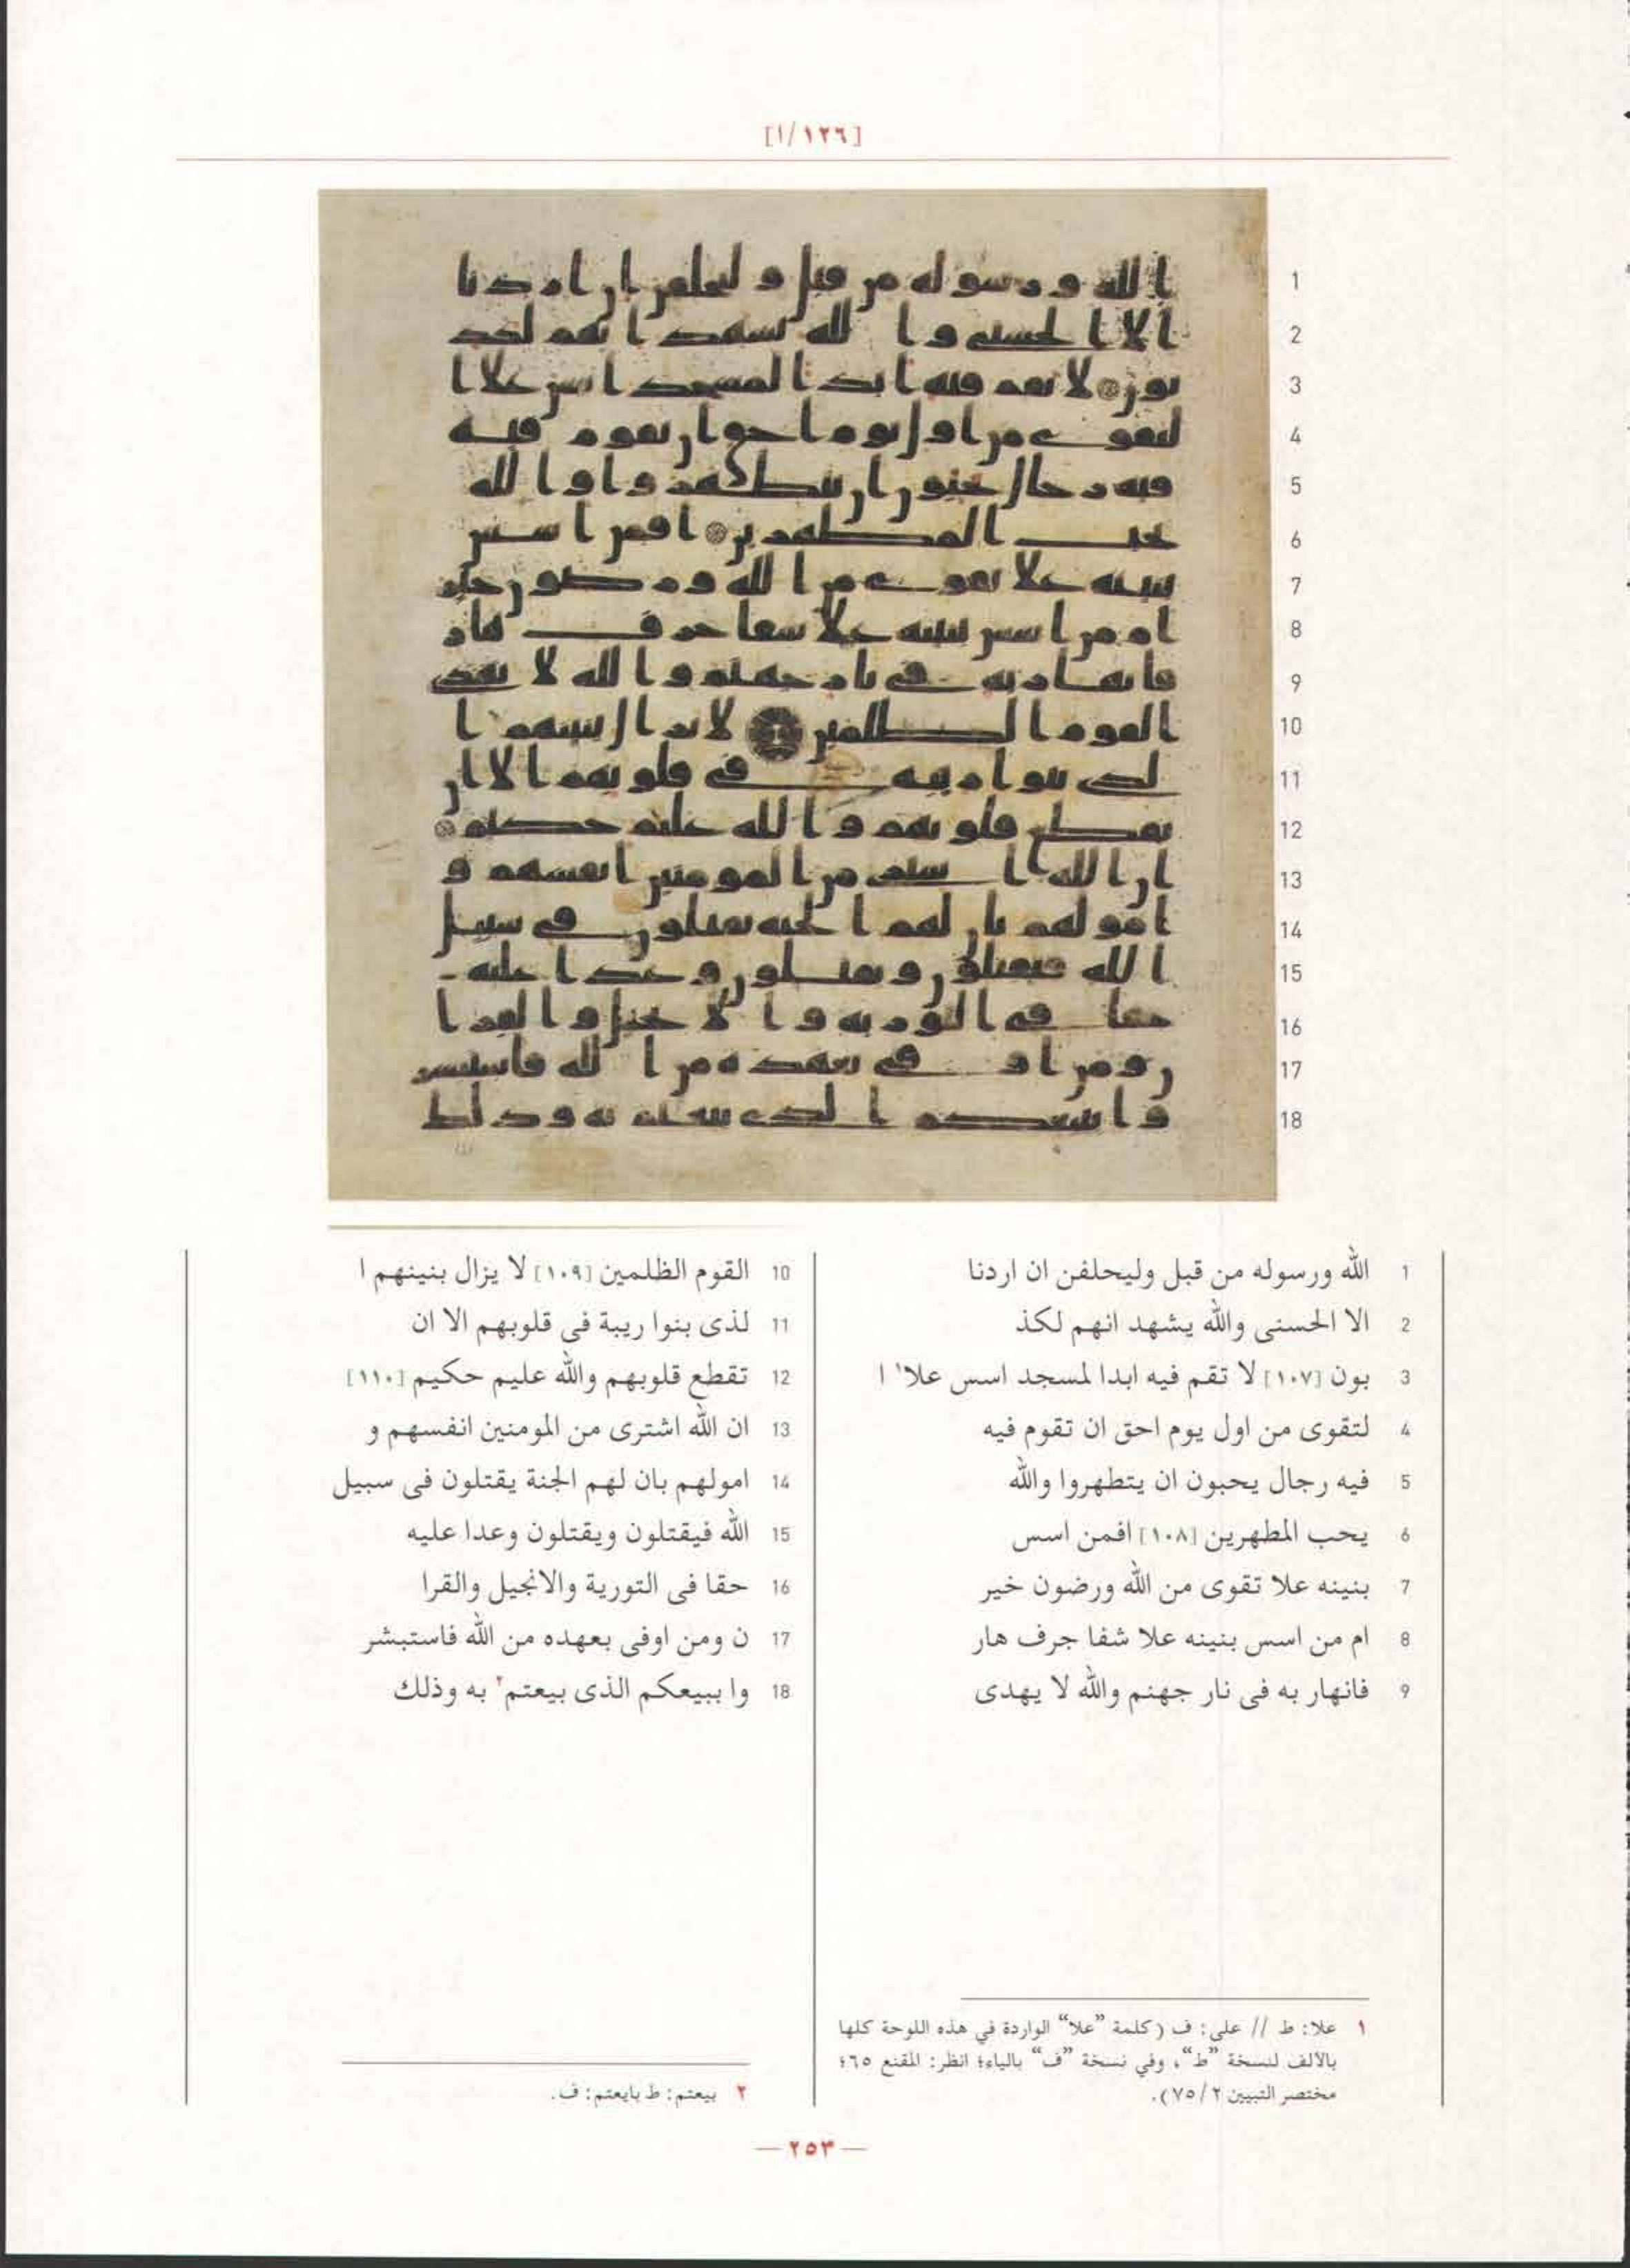 [١٢٦/ا]
1 الله ورسوله من قبل وليحلفن ان اردنا
2 الا الحسنى والله يشهد انهم لكذ
3 بون [١٠٧] لا تقم فيه ابدا لمسجد اسس علا١ ا
4 لتقوى من اول يوم احق ان تقوم فيه
5 فيه رجال يحبون ان يتطهروا والله
6 يحب المطهرين [١٠٨] افمن اسس
7 بنينه علا تقوى من الله ورضون خير
8 ام من اسس بنينه علا شفا جرف هار
9 فانهار به فى نار جهنم والله لا يهدى
10 القوم الظلمين [١٠٩] لا يزال بنينهم ا
11 لذى بنوا ريبة فى قلوبهم الا ان
12 تقطع قلوبهم والله عليم حكيم [١١٠]
13 ان الله اشترى من المومنين انفسهم و
14 امولهم بان لهم الجنة يقتلون فى سبيل
15 الله فيقتلون ويقتلون وعدا عليه
16 حقا فى التورية والانجيل والقرا
17 ن ومن اوفى بعهده من الله فاستبشر
18 وا ببيعكم الذى بيعتم٢ به وذلك
١ علا: ط // على: ف (كلمة "علا" الواردة في هذه اللوحة كلها
بالألف لنسخة "ط"، وفي نسخة "ف" بالياء؛ انظر: المقنع ٦٥؛
مختصر التبيين ٧٥/٢).
٢ بيعتم: ط بايعتم: ف.
— ٢٥٣ —